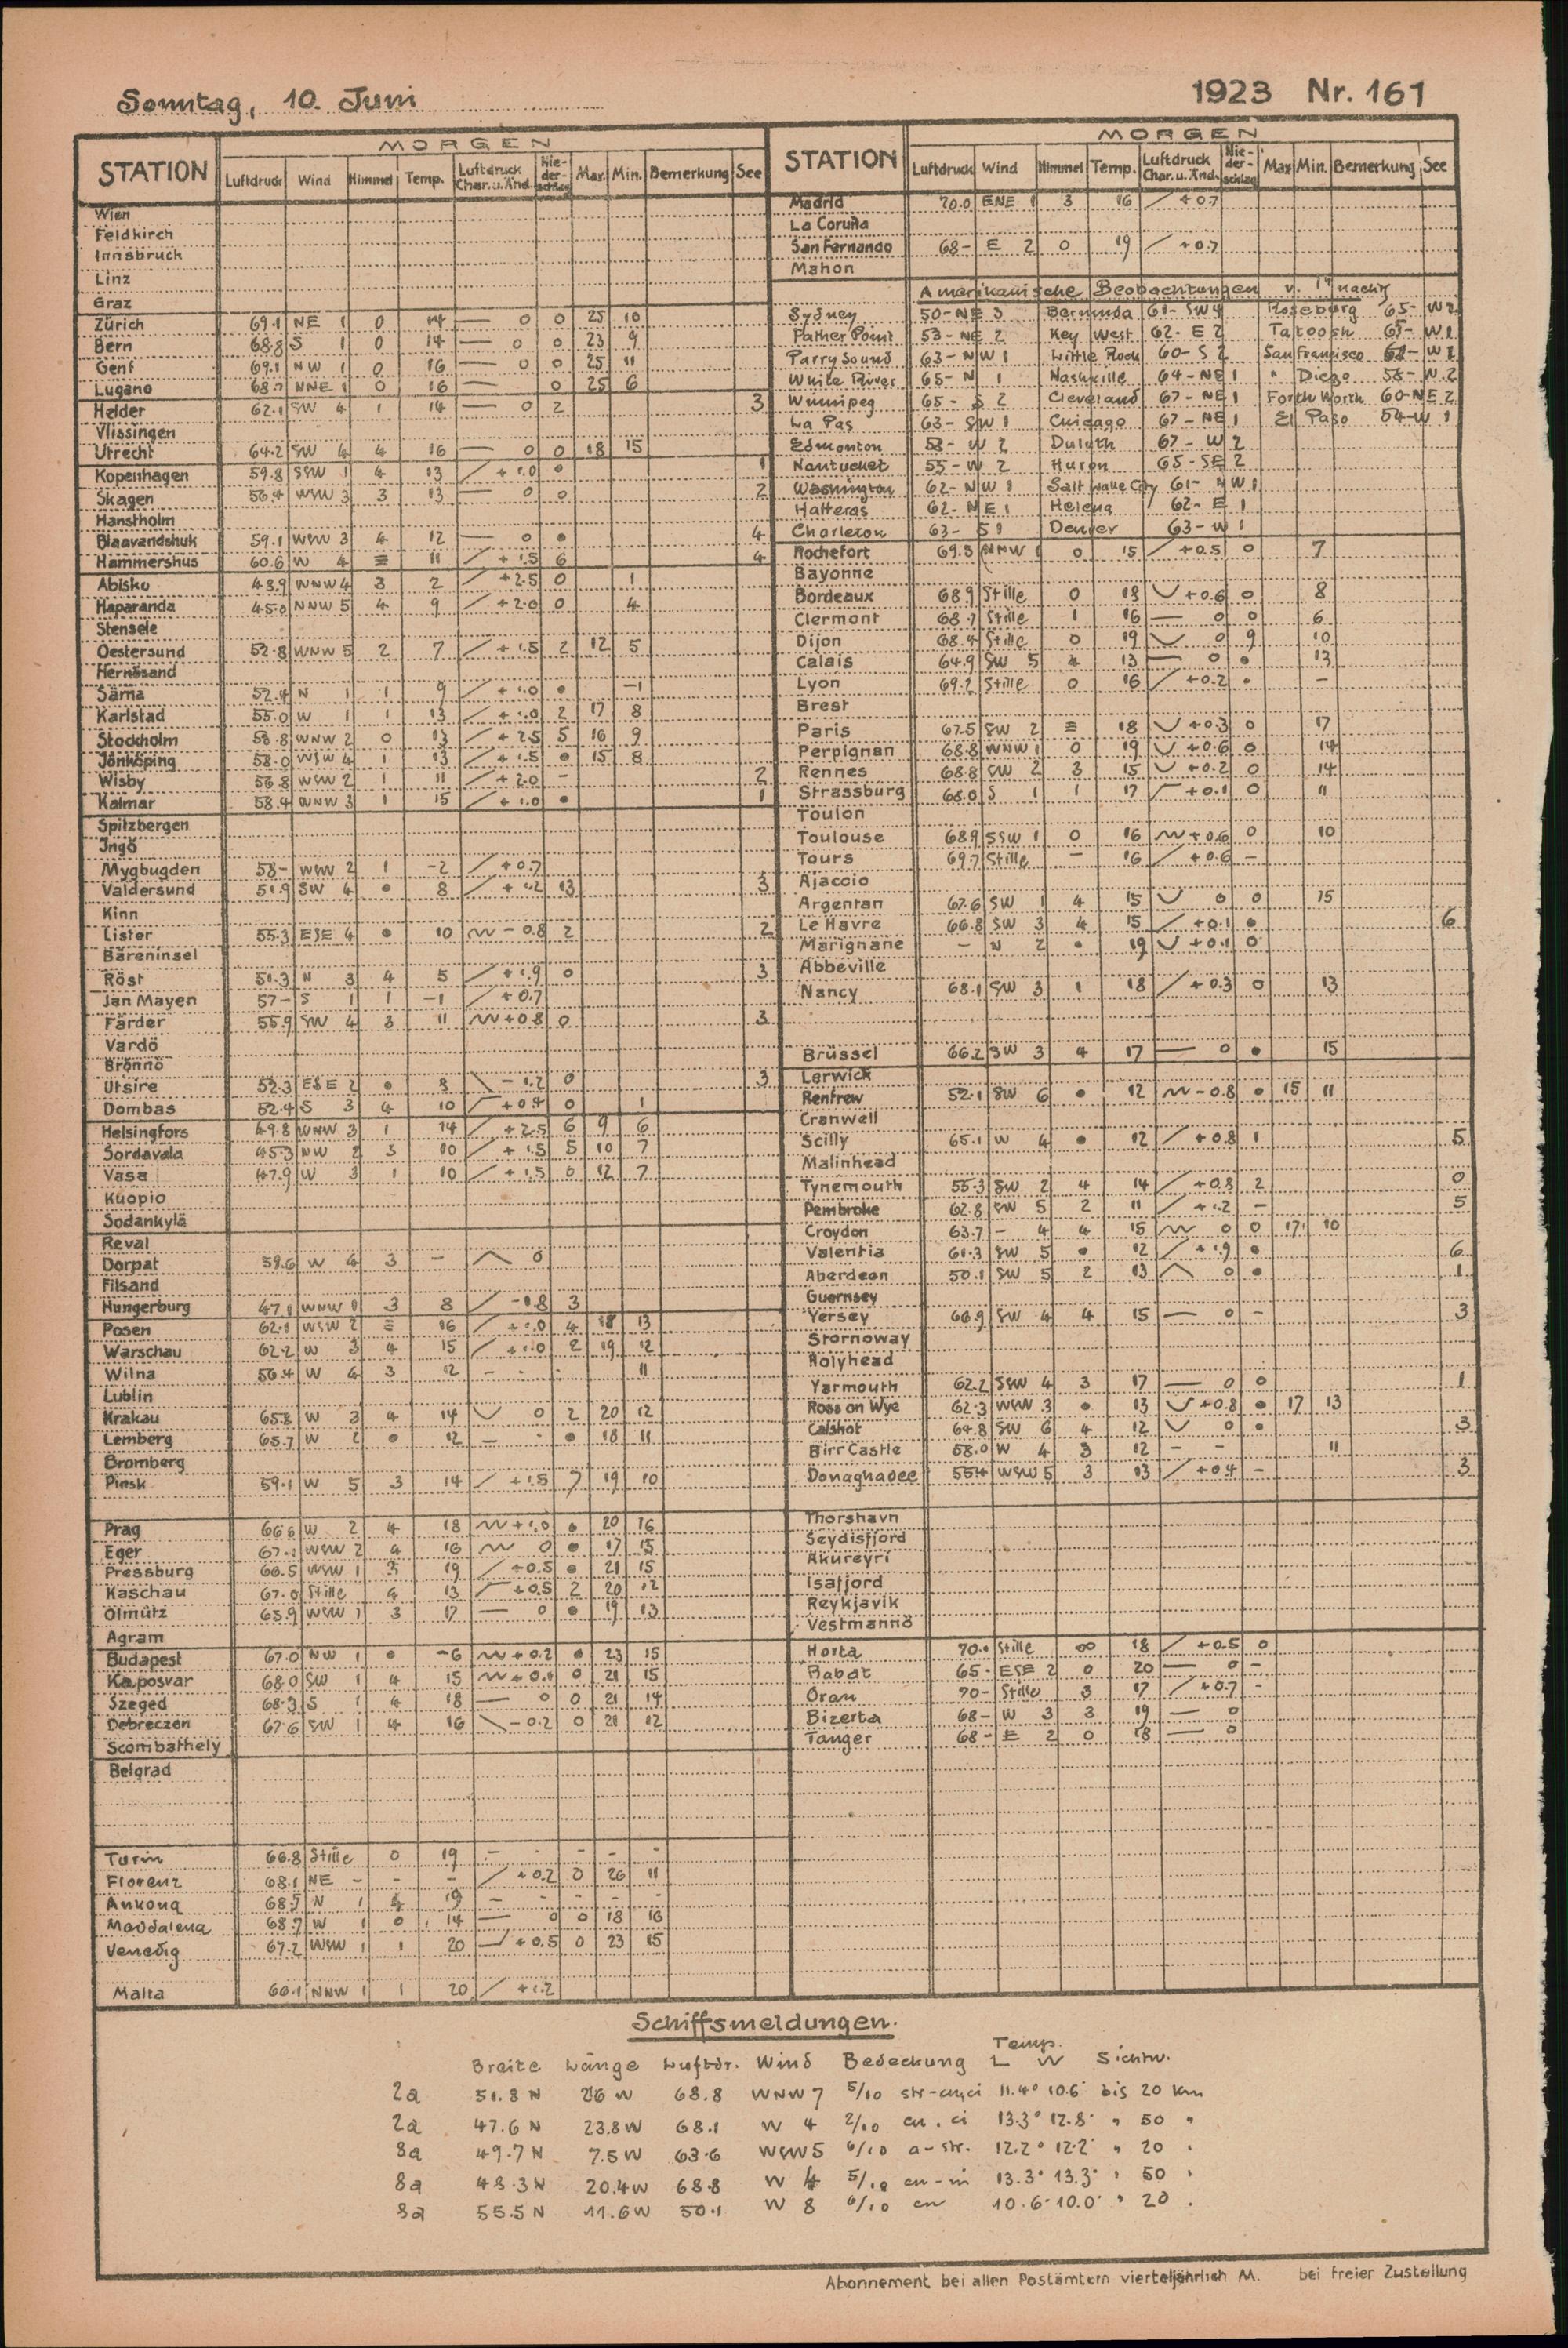 Sonntag, 10. Juni
1923 Nr. 161
MORGEN
STATION Luftdruck Wind Himmel Temp. Luftdruck Char. u. Änd. Nie-der-schlag Max. Min. Bemerkung See
Wien
Feldkirch
Innsbruck
Linz
Graz
Zürich 69.1 NE 1 0 14 — 0 0 25 10
Bern 68.8 S 1 0 14 — 0 0 23 9
Genf 69.1 NW 1 0 16 — 0 0 25 11
Lugano 68.7 NNE 1 0 16 — 0 25 6
Helder 62.1 SW 4 1 14 — 0 2 3
Vlissingen
Utrecht 64.2 SW 4 4 16 — 0 0 18 15
Kopenhagen 59.8 SSW 1 4 13 / +1.0 • 1
Skagen 56.4 WSW 3 3 13 — 0 0 2
Hanstholm
Blaavandshuk 59.1 WSW 3 4 12 — 0 • 4
Hammershus 60.6 W 4 ≡ 11 / +1.5 6 4
Abisko 48.9 WNW 4 3 2 / +2.5 0 1
Haparanda 45.0 NNW 5 4 9 / +2.0 0 4
Stensele
Oestersund 52.8 WNW 5 2 7 / +1.5 2 12 5
Hernösand
Särna 52.4 N 1 1 9 / +1.0 • −1
Karlstad 55.0 W 1 1 13 / +1.0 2 17 8
Stockholm 53.8 WNW 2 0 13 / +2.5 5 16 9
Jönköping 58.0 WSW 4 1 13 / +1.5 • 15 8
Wisby 56.8 WSW 2 1 11 / +2.0 - 2
Kalmar 58.4 WNW 3 1 15 / +1.0 • 1
Spitzbergen
Ingö
Mygbugden 58- WSW 2 1 -2 / +0.7
Valdersund 51.9 SW 4 • 8 / +1.2 13 3
Kinn
Lister 55.3 ESE 4 • 10 -0.8 2 2
Bäreninsel
Röst 51.3 N 3 4 5 / +1.9 0 3
Jan Mayen 57- S 1 1 -1 / +0.7
Färder 55.9 SW 4 3 11 +0.8 0 3
Vardö
Brönnö
Utsire 52.3 ESE 2 • 8 \ -1.2 0 3
Dombas 52.4 S 3 4 10 +0.4 0 1
Helsingfors 49.8 WNW 3 1 14 / +2.5 6 9 6
Sordavala 45.3 NW 2 3 10 / +1.5 5 10 7
Vasa 47.9 W 3 1 10 / +1.5 0 12 7
Kuopio
Sodankylä
Reval
Dorpat 59.6 W 4 3 - 0
Filsand
Hungerburg 47.1 WNW 1 3 8 / -1.8 3
Posen 62.1 WSW 2 ≡ 16 / +1.0 4 18 13
Warschau 62.2 W 3 4 15 / +1.0 2 19 12
Wilna 56.4 W 4 3 12 - - 11
Lublin
Krakau 65.8 W 3 4 14 0 2 20 12
Lemberg 65.7 W 2 • 12 — - • 18 11
Bromberg
Pinsk 59.1 W 5 3 14 / +1.5 7 19 10
Prag 66.6 W 2 4 18 +1.0 • 20 16
Eger 67.1 WSW 2 4 16 0 • 17 15
Pressburg 66.5 WSW 1 3 19 / +0.5 • 21 15
Kaschau 67.0 Stille 4 13 +0.5 2 20 12
Olmütz 65.9 WSW 1 3 17 — 0 • 19 13
Agram
Budapest 67.0 NW 1 • -6 +0.2 • 23 15
Kaposvar 68.0 SW 1 4 15 +0.1 0 21 15
Szeged 68.3 S 1 4 18 — 0 0 21 14
Debreczen 67.6 SW 1 4 16 \ -0.2 0 21 12
Scombathely
Belgrad
Turin 66.8 Stille 0 19 - - - - -
Florenz 68.1 NE - - - / +0.2 0 26 11
Ankona 68.5 N 1 19 - - - - -
Maddalena 68.7 W 1 0 14 — 0 0 18 16
Venedig 67.2 WSW 1 1 20 +0.5 0 23 15
Malta 66.1 NNW 1 1 20 / +1.2
MORGEN
STATION Luftdruck Wind Himmel Temp. Luftdruck Char. u. Änd. Nie-der-schlag Max Min. Bemerkung See
Madrid 70.0 ENE 1 3 16 / +0.7
La Coruña
San Fernando 68- E 2 0 19 / +0.7
Mahon
Amerikanische Beobachtungen v. 1 nachts
Sydney 50-NE 3 Bermuda 61-SW 4 Roseburg 65- W 2
Father Point 53-NE 2 Key West 62- E 2 Tatoosh 65- W 1
Parry Sound 63-NW 1 Little Rock 60-S 2 San Francisco W 1
White River 65-N 1 Nashville 64-NE 1 " Diego 58-W 2
Winnipeg 65-S 2 Cleveland 67-NE 1 Forth Worth 60-NE 2
La Pas 63-SW 1 Chicago 67-NE 1 El Paso 54-W 1
Edmonton 58-W 2 Duluth 67-W 2
Nantucket 55-W 2 Huron 65-SE 2
Washington 62-NW 1 Salt Lake City 61-NW 1
Hatteras 62-NE 1 Helena 62-E 1
Charleton 63-S 1 Denver 63-W 1
Rochefort 69.5 NNW 1 0 15 / +0.5 0 7
Bayonne
Bordeaux 68.9 Stille 0 18 +0.6 0 8
Clermont 68.7 Stille 1 16 — 0 0 6
Dijon 68.4 Stille 0 19 0 9 10
Calais 64.9 SW 5 4 13 — 0 • 13
Lyon 69.2 Stille 0 16 / +0.2 • -
Brest
Paris 67.5 SW 2 ≡ 18 +0.3 0 17
Perpignan 68.8 WNW 1 0 19 +0.6 0 14
Rennes 68.8 SW 2 3 15 +0.2 0 14
Strassburg 68.0 S 1 1 17 +0.1 0 11
Toulon
Toulouse 68.9 SSW 1 0 16 +0.6 0 10
Tours 69.7 Stille - 16 / +0.6 -
Ajaccio
Argentan 67.6 SW 1 4 15 0 0 15
Le Havre 66.8 SW 3 4 15 / +0.1 • 6
Marignane - N 2 • 19 +0.1 0
Abbeville
Nancy 68.1 SW 3 1 18 / +0.3 0 13
Brüssel 66.2 SW 3 4 17 — 0 • 15
Lerwick
Renfrew 52.1 SW 6 • 12 -0.8 • 15 11
Cranwell
Scilly 65.1 W 4 • 12 / +0.8 1 5
Malinhead
Tynemouth 55.3 SW 2 4 14 / +0.8 2 0
Pembroke 62.8 SW 5 2 11 / +1.2 - 5
Croydon 63.7 - 4 4 15 0 0 17 10
Valentia 61.3 SW 5 • 12 / +1.9 • 6
Aberdeen 50.1 SW 5 2 13 0 • 1
Guernsey
Yersey 66.9 SW 4 4 15 — 0 - 3
Stornoway
Holyhead
Yarmouth 62.2 SSW 4 3 17 — 0 0 1
Ross on Wye 62.3 WSW 3 • 13 +0.8 • 17 13
Calshot 64.8 SW 6 4 12 0 • 3
Birr Castle 58.0 W 4 3 12 - - 11
Donaghadee 55.4 WSW 5 3 13 / +0.4 - 3
Thorshavn
Seydisfjord
Akureyri
Isafjord
Reykjavik
Vestmannö
Horta 70.• Stille ∞ 18 / +0.5 0
Rabat 65- ESE 2 0 20 — 0 -
Oran 70- Stille 3 17 / +0.7 -
Bizerta 68- W 3 3 19 — 0
Tanger 68- E 2 0 18 — 0
Schiffsmeldungen.
Breite Länge Luftdr. Wind Bedeckung Temp. L W Sichtw.
2a 51.8 N 26 W 68.8 WNW 7 5/10 str-cu,ci 11.4° 10.6° bis 20 Km
2a 47.6 N 23.8 W 68.1 W 4 2/10 cu. ci 13.3° 12.8° " 50 "
8a 49.7 N 7.5 W 63.6 WSW 5 6/10 a-str. 12.2° 12.2° " 20 "
8a 48.3 N 20.4 W 68.8 W 4 5/10 cu-ni 13.3° 13.3° " 50 "
8a 55.5 N 11.6 W 50.1 W 8 6/10 cu 10.6° 10.0° " 20 "
Abonnement bei allen Postämtern vierteljährlich M. bei freier Zustellung